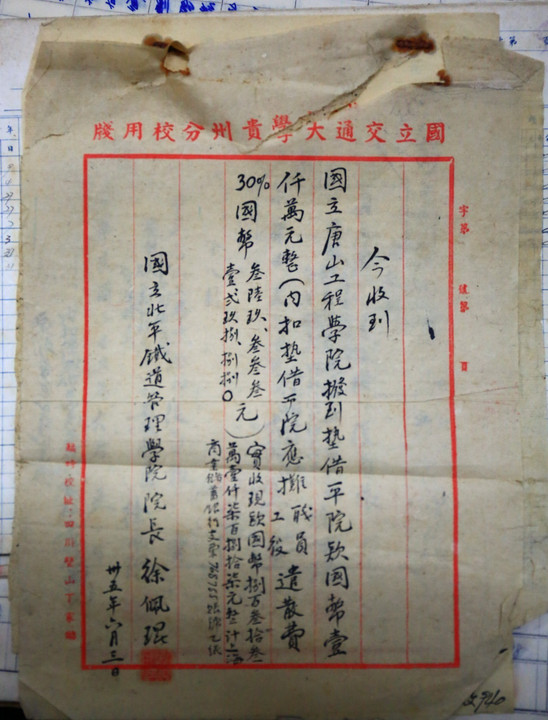 國立交通大學貴州分校用牋
字第 號第 頁
今收到
國立唐山工程學院撥到墊借平院款國幣壹
仟萬元整(內扣墊借平院應攤職員工役遣散費
30%國幣
叁陸玖、叁叁叁元
壹弍玖捌、捌捌0
)實收現款國幣捌百叁拾叁
萬壹仟柒百捌拾柒元整計上海
商業儲蓄銀行支票
國立北平鐵道管理學院院長 徐佩琨
卅五年六月三日
臨時校址:四川璧山丁家坳